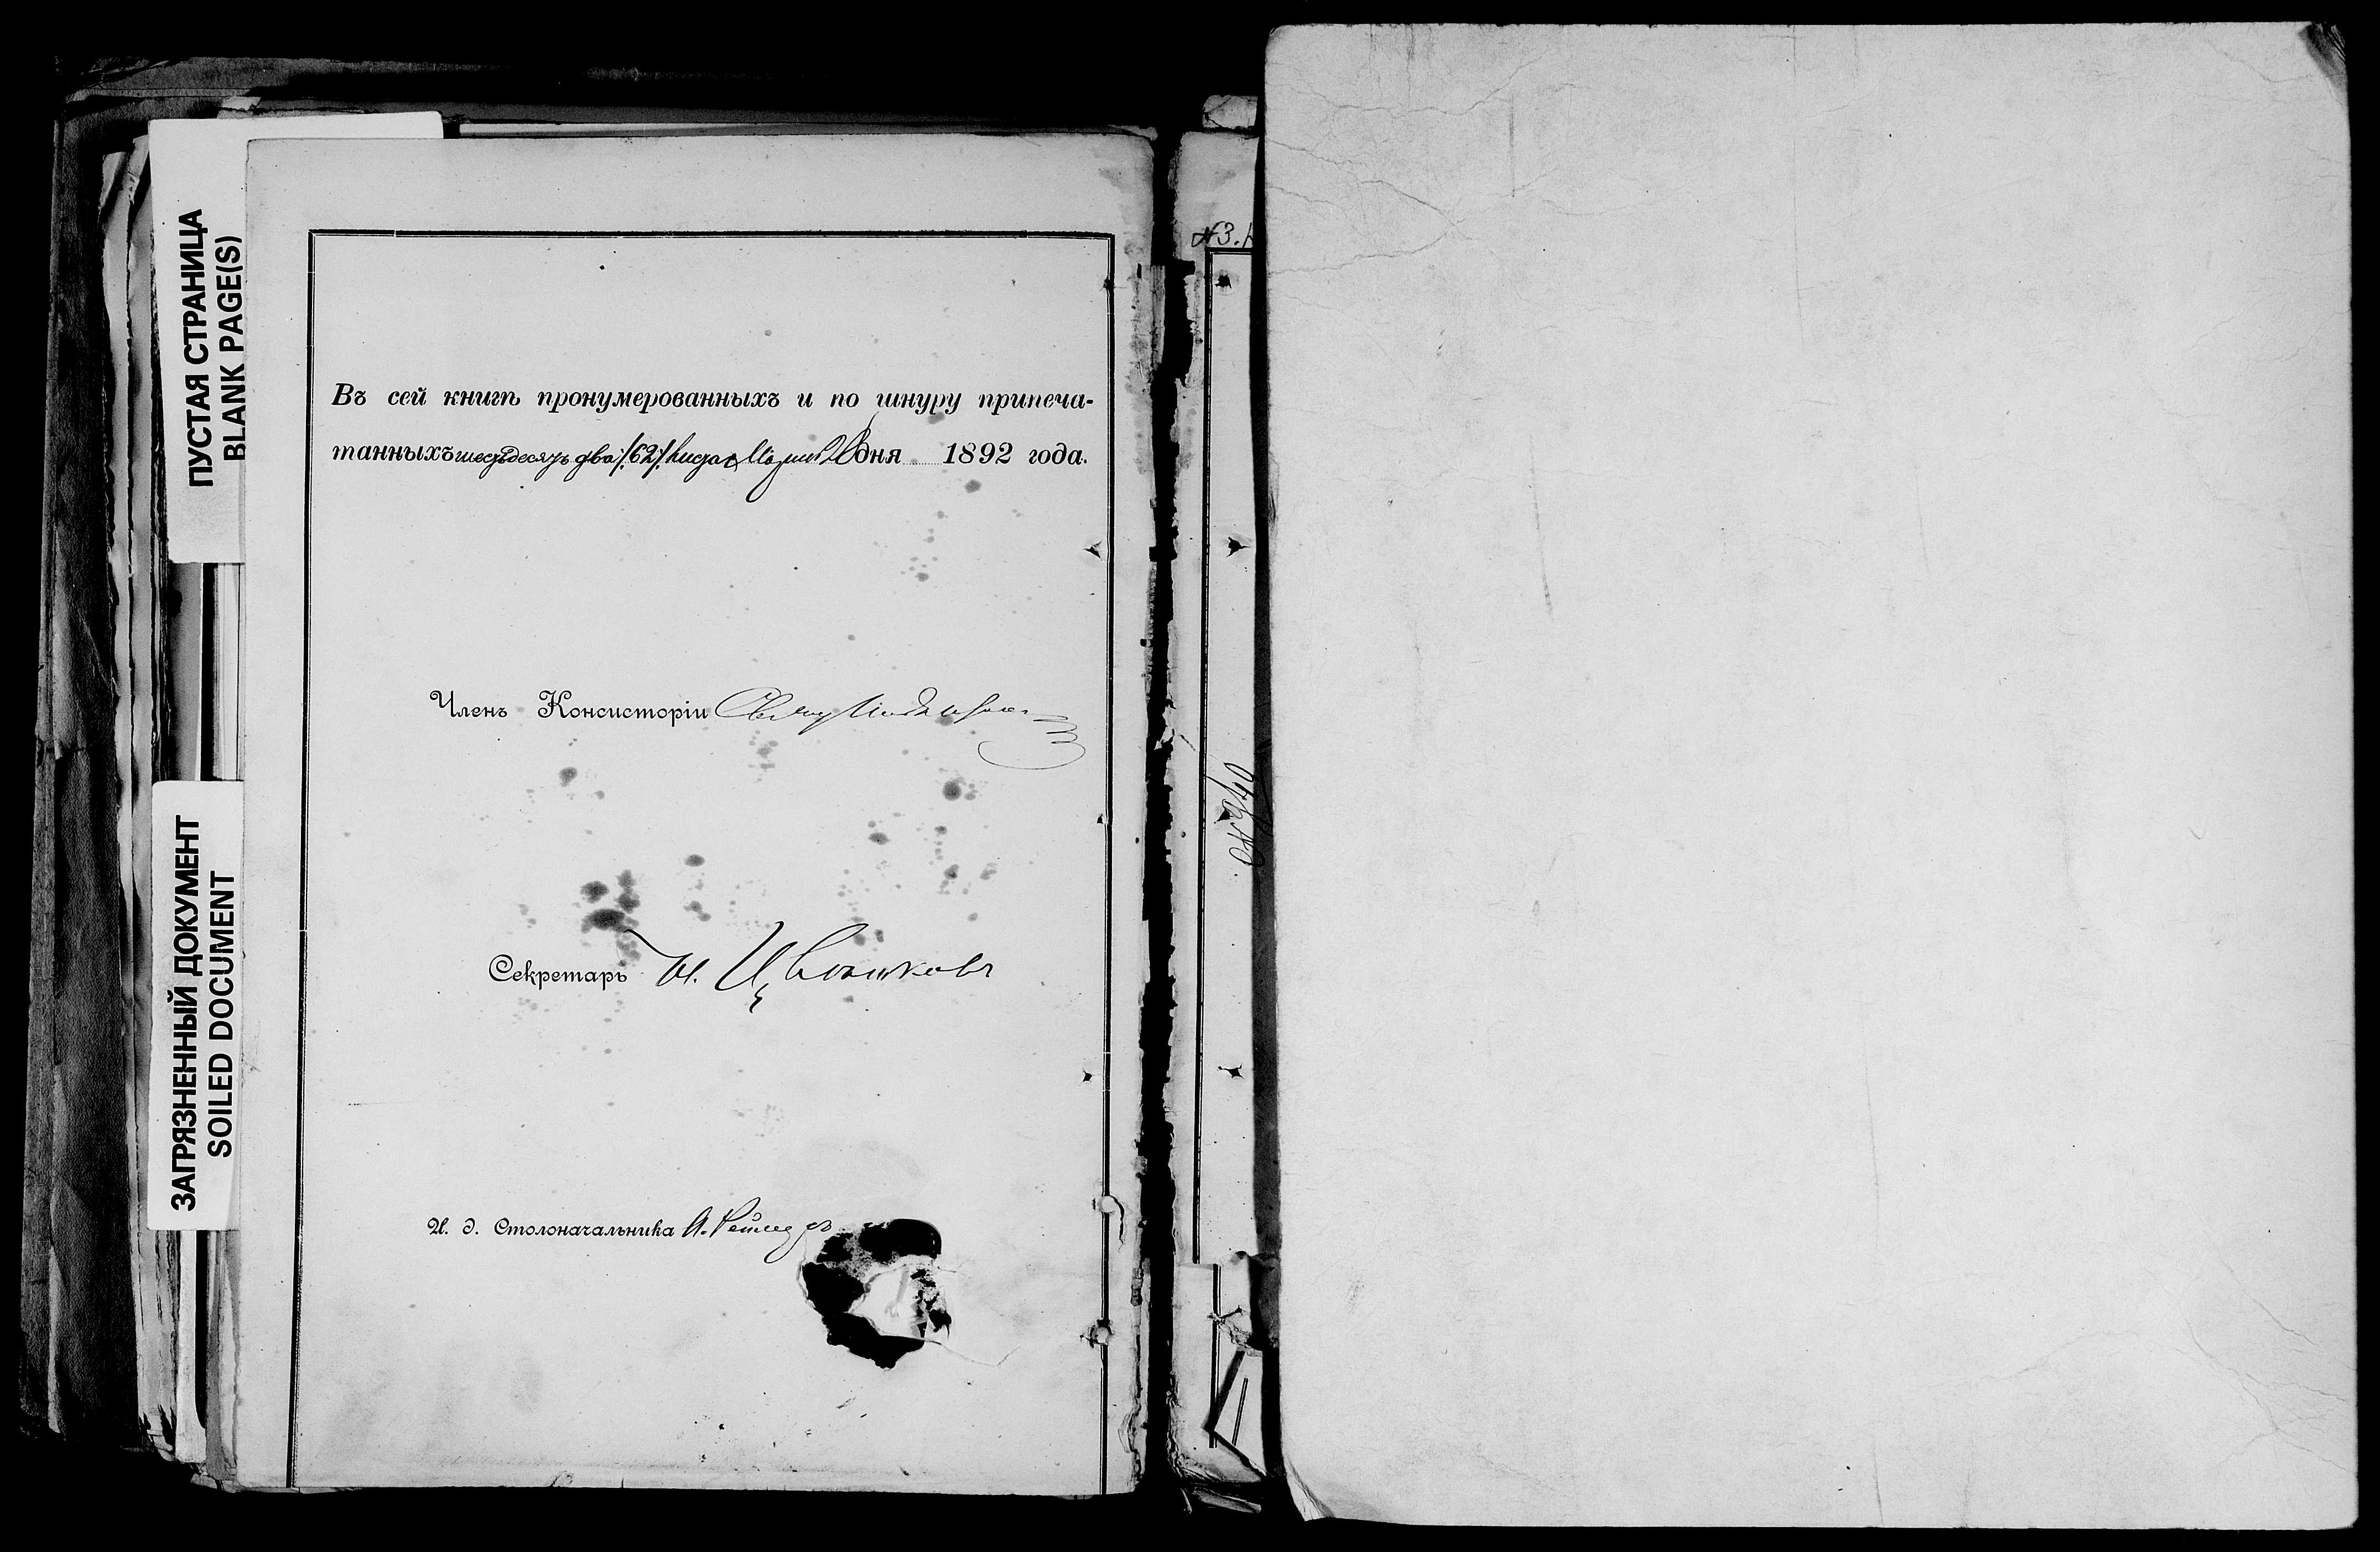 ПУСТАЯ СТРАНИЦА
BLANK PAGE(S)
ЗАГРЯЗНЕННЫЙ ДОКУМЕНТ
SOILED DOCUMENT
Въ сей книгѣ пронумерованныхъ и по шнуру припеча-
танныхъ шестьдесятъ два /62/ дня 1892 года.
Членъ Консисторіи
Секретарь Н. Цвѣтковъ
И. д. Столоначальника А.
№3.